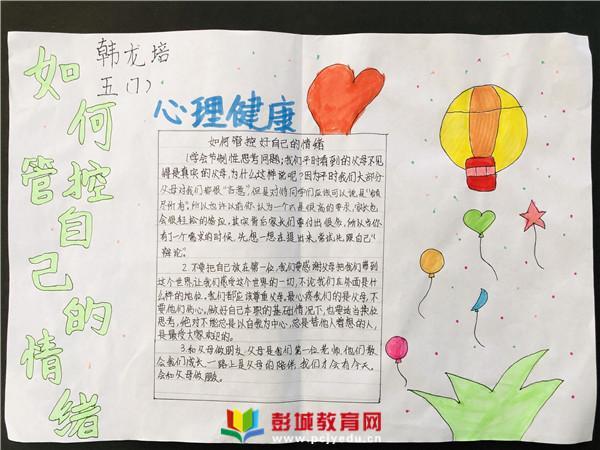 韩龙培
五(7)
如何管控自己的情绪
心理健康
如何管控好自己的情绪
1.学会节制性思考问题:我们平时看到的父母不见
得是真实的父母,为什么这样说呢?因为平时我们大部分
父母对我们都很“吝啬”但是对待同学们应该可以说是“倾
尽所有”。所以当许以后你认为一个不是很高的要求,家长也
会很轻松的答应,其实背后家长们要付出很多,所以当你
有了一个需求的时候,先想一想在提出来,尝试比跟自己“
辩论”。
2.不要把自己放在第一位,我们要感谢父母把我们带到
这个世界,让我们感受这个世界的一切,不论我们在外面是什
么样的地位。我们都应该尊重父母。最心疼我们的是父母,不
要他们伤心。做好自己本职的基础情况下,也要适当换位
思考,绝对不能总是以自我为中心,总是替他人着想的人,
是最受大家欢迎的。
3.和父母做朋友,父母是我们第一位老师,他们教
会我们成长,一路上是父母的陪伴,我们才会有今天。
会和父母做朋友。
彭城教育网
www.pcjyedu.cn